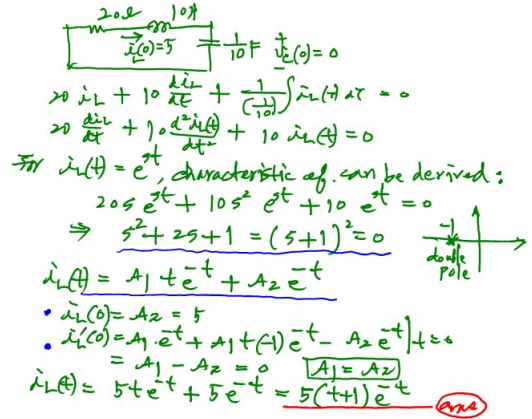 20Ω 10H
i_L(0)=5 1/10 F + v_c(0)=0 -
20 i_L + 10 di_L/dt + 1/(1/10) ∫ i_L(t) dt = 0
20 di_L/dt + 10 d²i_L(t)/dt² + 10 i_L(t) = 0
For i_L(t) = e^st, characteristic eq. can be derived:
20s e^st + 10s² e^st + 10 e^st = 0
⇒ s²+2s+1 = (s+1)² = 0
-1
double
pole
i_L(t) = A1 t e^-t + A2 e^-t
• i_L(0) = A2 = 5
• i_L'(0) = A1·e^-t + A1 t(-1) e^-t - A2 e^-t | t=0
= A1 - A2 = 0 A1 = A2
i_L(t) = 5t e^-t + 5 e^-t = 5(t+1) e^-t ans